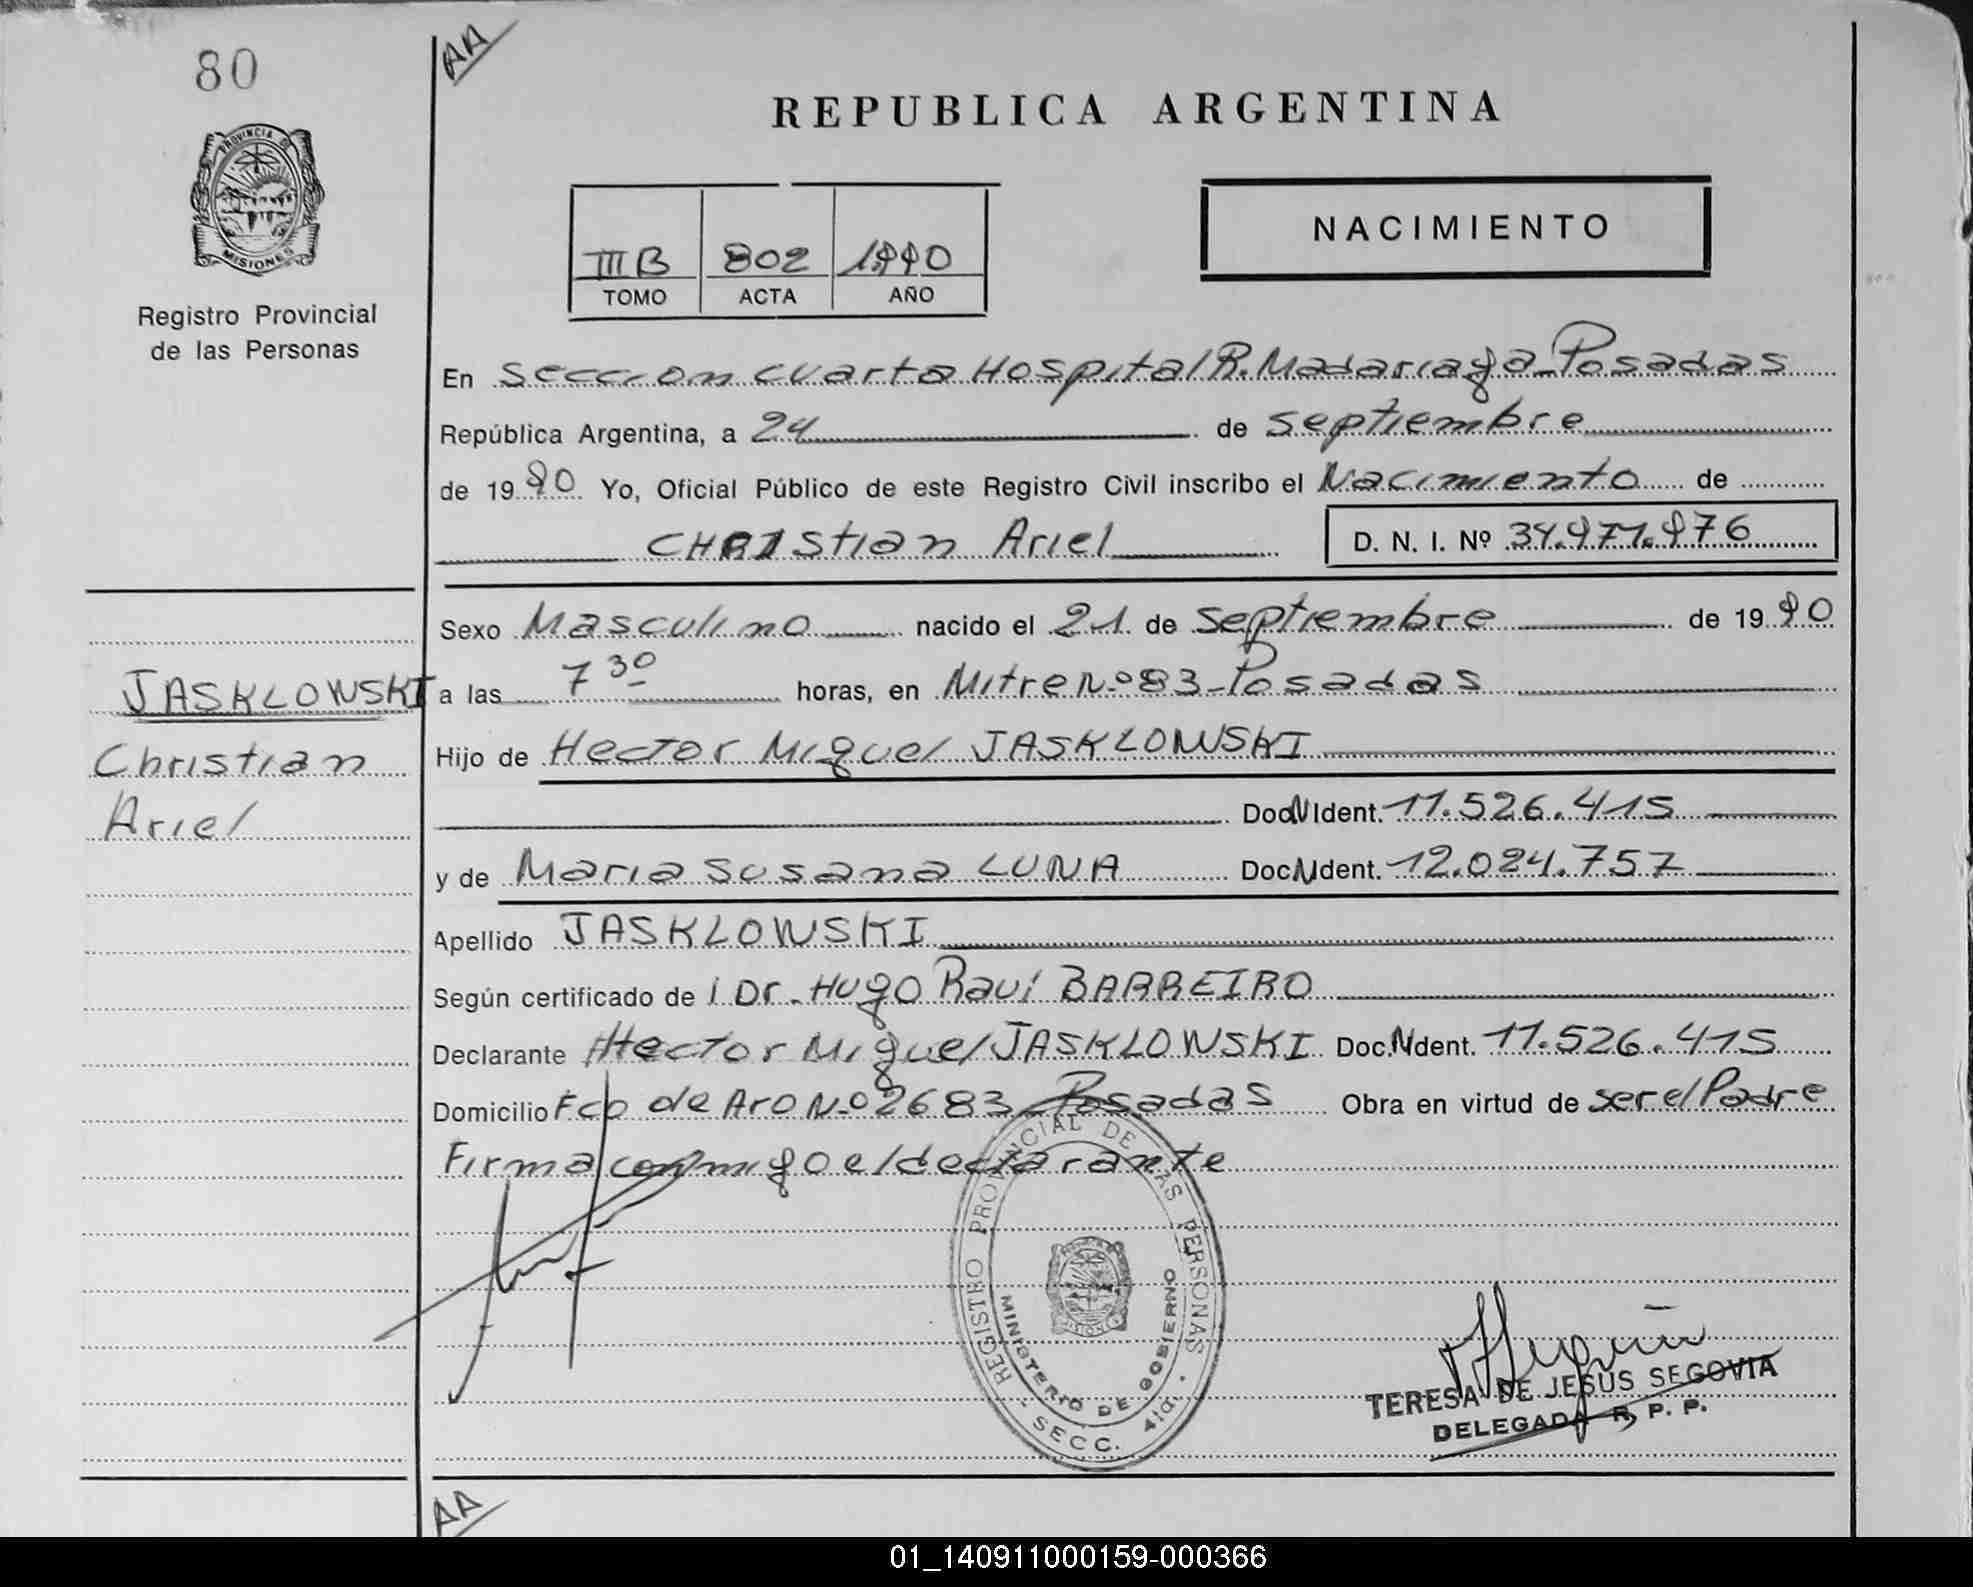 80
AA
PROVINCIA DE
MISIONES
Registro Provincial
de las Personas
REPUBLICA ARGENTINA
III B 802 1990
TOMO ACTA AÑO
NACIMIENTO
En Seccion cuarta Hospital R. Madariaga - Posadas
República Argentina, a 24 de septiembre
de 1990 Yo, Oficial Público de este Registro Civil inscribo el Nacimiento de
CHRIstian Ariel D. N. I. Nº 34.971.976
Sexo Masculino nacido el 21 de septiembre de 1990
JASKLOWSKI a las 7 30 horas, en Mitre Nº 83 - Posadas
Christian Hijo de Hector Miguel JASKLOWSKI
Ariel Doc N Ident. 11.526.415
y de Maria Susana LUNA Doc N Ident. 12.024.757
Apellido JASKLOWSKI
Según certificado de l Dr. Hugo Raul BARREIRO
Declarante Hector Miguel JASKLOWSKI Doc. N Ident. 11.526.415
Domicilio Fco de Aro Nº 2683 - Posadas Obra en virtud de ser el Padre
Firma conmigo el declarante
REGISTRO PROVINCIAL DE LAS PERSONAS
MINISTERIO DE GOBIERNO
SECC. 4ta.
TERESA DE JESUS SEGOVIA
DELEGADA R. P. P.
AA
01_140911000159-000366